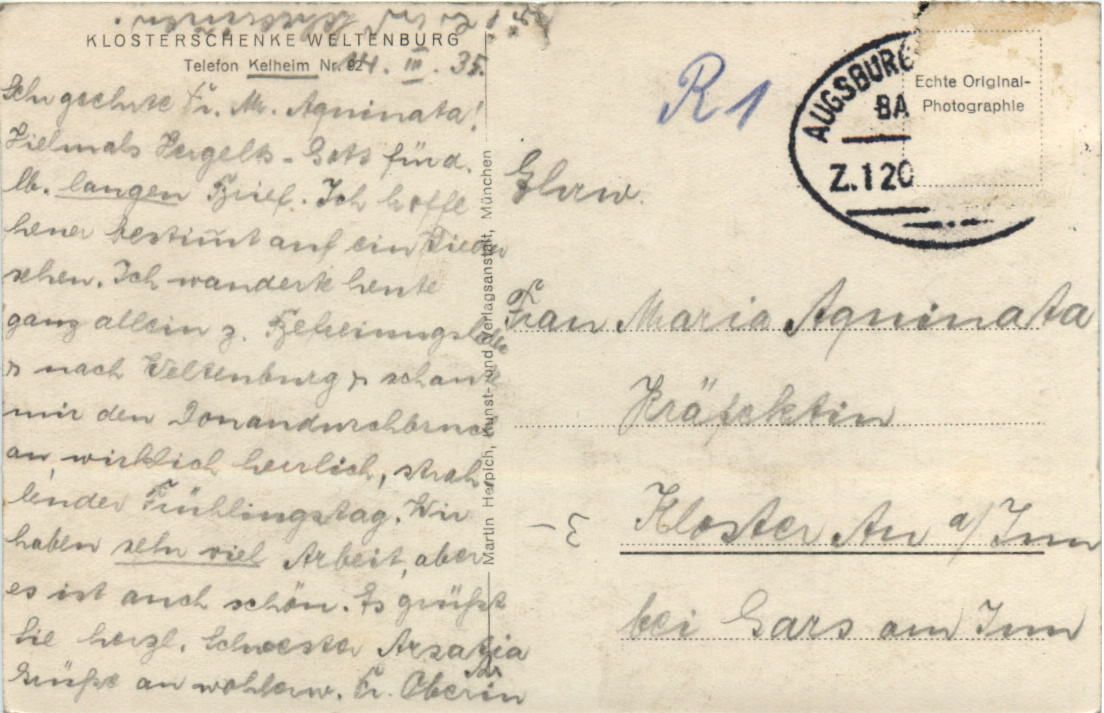 KLOSTERSCHENKE WELTENBURG
Telefon Kelheim Nr. 92
14. III. 35.
Sehr geehrte Fr. M. Aquinata!
Vielmals Vergelts-Gott für d.
lb. langen Brief. Ich hoffe
heuer bestimmt auf ein Wieder
sehen. Ich wanderte heute
ganz allein z. Befreiungshalle
nach Weltenburg schaute
mir den Donaudurchbruch
an, wirklich herrlich, strah
lender Frühlingstag. Wir
haben sehr viel Arbeit, aber
es ist auch schön. Es grüßt
Sie herzl. Schwester Arsatia
Grüße an wohlerw. Fr. Oberin
u. Schwestern.
Martin Herpich, Kunst- und Verlagsanstalt, München
R 1
AUGSBURG
BA
Z.120
Echte Original-
Photographie
Ehrw.
Frau Maria Aquinata
Präfektin
Kloster Au a/Inn
bei Gars am Inn